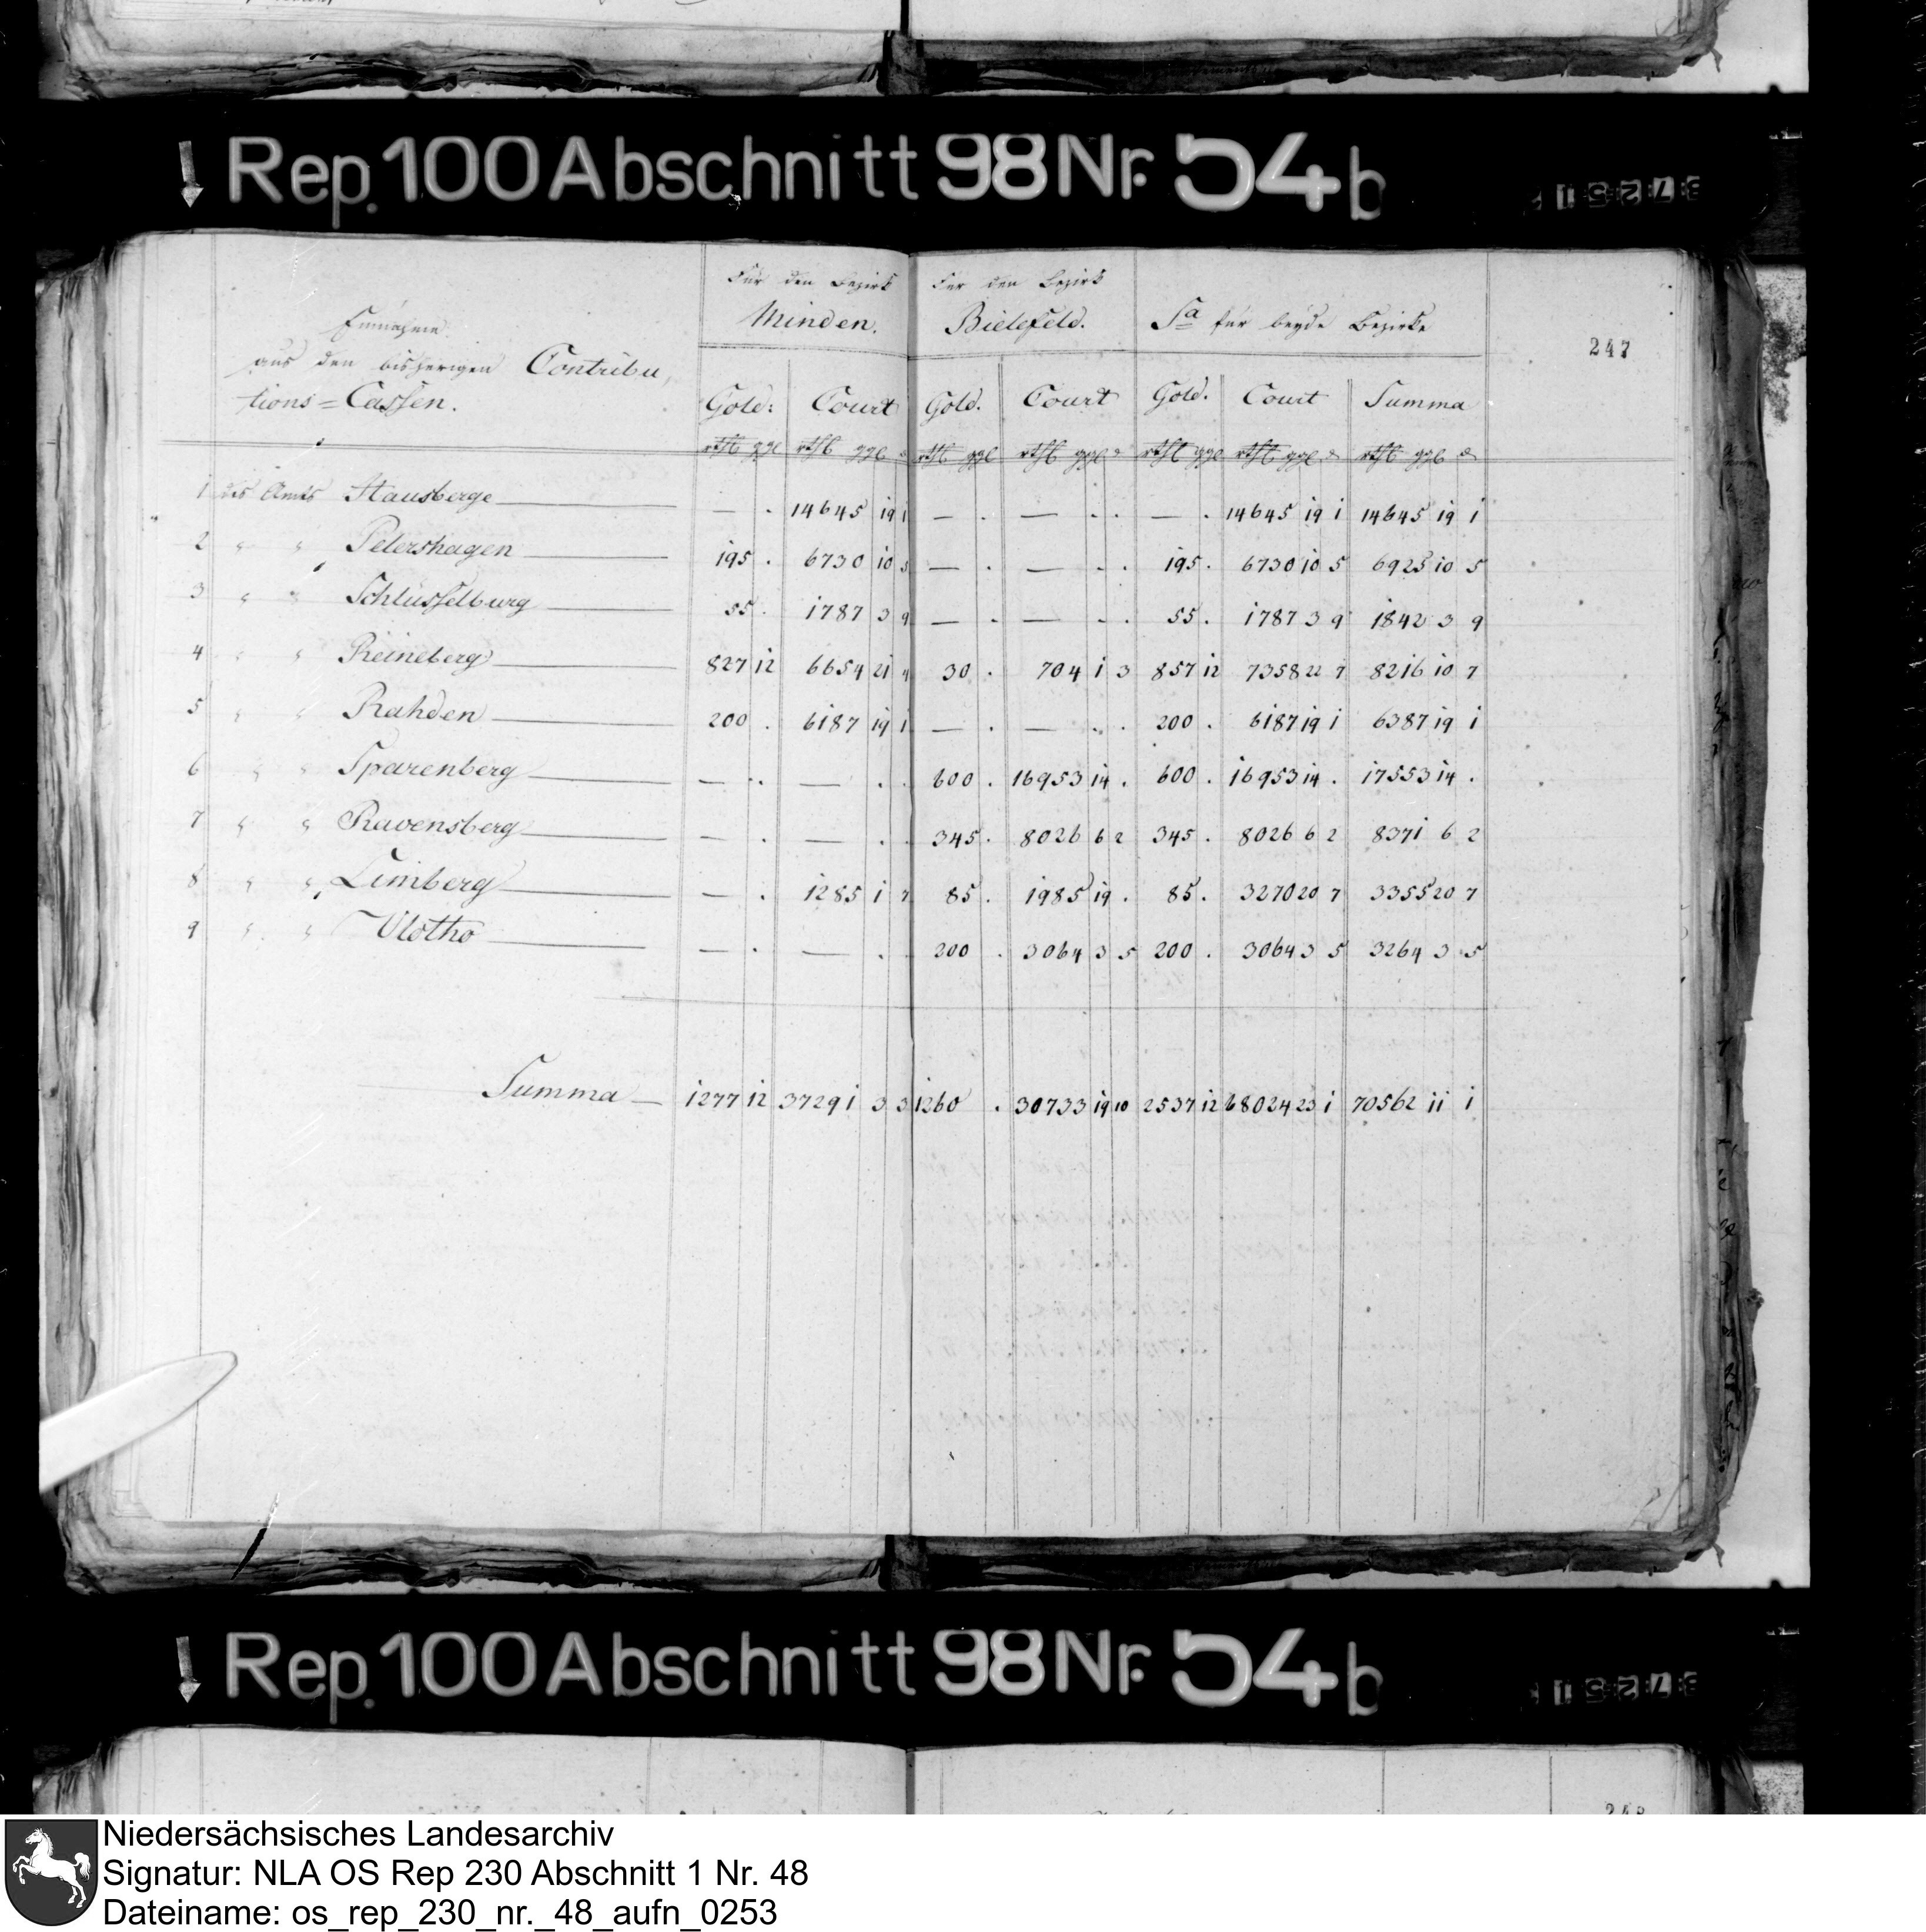 Rep. 100 Abschnitt 98 Nr. 54 b
3 7 2 5 1
Für den Bezirk Für den Bezirk
Minden. Bielefeld. Sa für beyde Bezirke
Einnahme
247
aus den bisherigen Contribu,
tions=Cassen.
Gold: Court Gold. Court Gold. Court Summa
rthl ggl rthl ggl d rthl ggl rthl ggl d rthl ggl rthl ggl d rthl ggl d
1 des Amts Hausberge — . 14645 19 1 — . — . . — . 14645 19 1 14645 19 1
2 " " Petershagen 195 . 6730 10 5 — . — . . 195 . 6730 10 5 6925 10 5
3 " " Schlüsselburg 55 . 1787 3 9 — . — . . 55 . 1787 3 9 1842 3 9
4 " " Reineberg 827 12 6654 21 4 30 . 704 1 3 857 12 7358 22 7 8216 10 7
5 " " Rahden 200 . 6187 19 1 — . — . . 200 . 6187 19 1 6387 19 1
6 " " Sparenberg — . — . . 600 . 16953 14 . 600 . 16953 14 . 17553 14 .
7 " " Ravensberg — . — . . 345 . 8026 6 2 345 . 8026 6 2 8371 6 2
8 " " Limberg — . 1285 1 7 85 . 1985 19 . 85 . 3270 20 7 3355 20 7
9 " " Vlotho — . — . . 200 . 3064 3 5 200 . 3064 3 5 3264 3 5
Summa — 1277 12 37291 3 3 1260 . 30733 19 10 2537 12 68024 23 1 70562 11 1
Rep. 100 Abschnitt 98 Nr. 54 b
3 7 2 5 1
Niedersächsisches Landesarchiv
Signatur: NLA OS Rep 230 Abschnitt 1 Nr. 48
Dateiname: os_rep_230_nr._48_aufn_0253